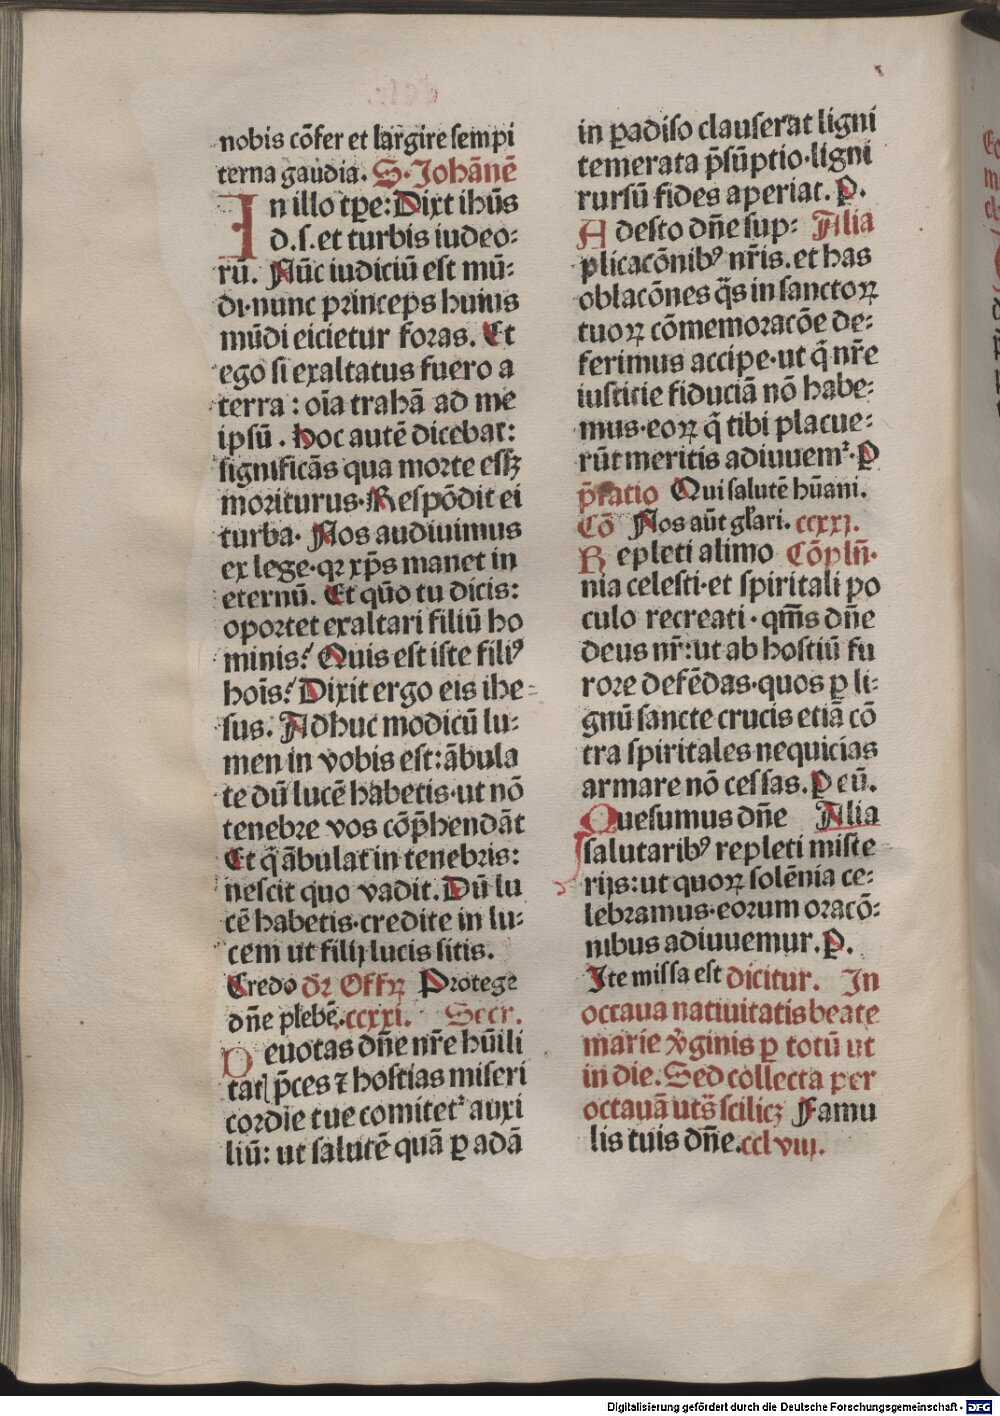 nobis cōfer et largire sempi
terna gaudia. S. Johānē
In illo tꝑe: Dixt ihūs
d. s. et turbis iudeo:
rū. Nūc iudiciū est mū:
di·nunc princeps huius
mūdi eicietur foras. Et
ego si exaltatus fuero a
terra : oīa trahā ad me
ipsū . Hoc autē dicebat:
significās qua morte essꝫ
moriturus. Respōdit ei
turba. Nos audiuimus
ex lege·qꝛ xp̄s manet in
eternū. Et qūo tu dicis:
oportet exaltari filiū ho
minis? Quis est iste filiꝰ
hoīs? Dixit ergo eis ihe-
sus. Adhuc modicū lu:
men in vobis est: ābula
te dū lucē habetis·ut nō
tenebre vos cōp̄hendāt
Et q̄ ābulat in tenebris:
nescit quo vadit. Dū lu
cē habetis·credite in lu:
cem ut filij lucis sitis.
Credo dr̄ Offꝝ Protege
dn̄e plebē. ccxxi. Secr.
Deuotas dn̄e nr̄e hūili
tatꝭ p̄ces ⁊ hostias miseri
cordie tue comitetᷣ auxi
liū: ut salutē quā ꝑ adā
in ꝑadiso clauserat ligni
temerata p̄sūptio·ligni
rursū fides aperiat. P.
Adesto dn̄e sup: Alia
plicacōnibꝰ nr̄is. et has
oblacōnes q̄s in sanctoꝝ
tuoꝝ cōmemoracōe de:
ferimus accipe·ut q̄ nr̄e
iusticie fiduciā nō habe:
mus·eoꝝ q̄ tibi placue:
rūt meritis adiuuemᷣ. P
p̄fatio Qui salutē hūani.
Cō Nos aūt gl̄ari. ccxxj.
Repleti alimo Cōpln̄.
nia celesti·et spiritali po
culo recreati · qm̄s dn̄e
deus nr̄: ut ab hostiū fu
rore defēdas·quos ꝑ li:
gnū sancte crucis etiā cō
tra spiritales nequicias
armare nō cessas. P eū.
Quesumus dn̄e Alia
salutaribꝰ repleti miste
rijs: ut quoꝝ solēnia ce:
lebramus·eorum oracō:
nibus adiuuemur. P.
Ite missa est dicitur. In
octaua natiuitatis beate
marie v̄ginis ꝑ totū ut
in die. Sed collecta per
octauā uts̄ scilicꝫ Famu
lis tuis dn̄e. cclviij.
Digitalisierung gefördert durch die Deutsche Forschungsgemeinschaft - DFG